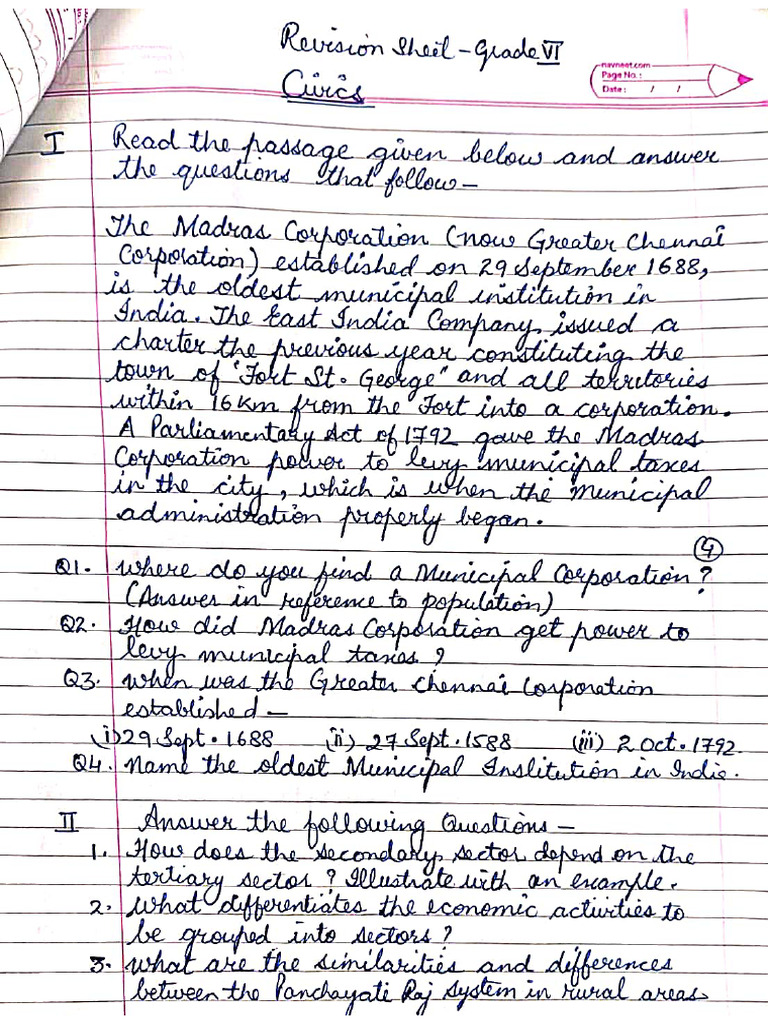 Revision Sheet - Grade VI
Civics
navneet.com
Page No.:
Date: / /
I Read the passage given below and answer
the questions that follow -
The Madras Corporation (now Greater Chennai
Corporation) established on 29 September 1688,
is the oldest municipal institution in
India. The East India Company, issued a
charter the previous year constituting the
town of "Fort St. George" and all territories
within 16 km from the Fort into a corporation.
A Parliamentary Act of 1792 gave the Madras
Corporation power to levy municipal taxes
in the city, which is when the municipal
administration properly began.
4
Q1. Where do you find a Municipal Corporation?
(Answer in reference to population)
Q2. How did Madras Corporation get power to
levy municipal taxes?
Q3. When was the Greater Chennai Corporation
established -
(i) 29 Sept. 1688 (ii) 27 Sept. 1588 (iii) 2 Oct. 1792.
Q4. Name the oldest Municipal Institution in India.
II Answer the following Questions -
1. How does the secondary sector depend on the
tertiary sector? Illustrate with an example.
2. What differentiates the economic activities to
be grouped into sectors?
3. What are the similarities and differences
between the Panchayati Raj system in rural areas